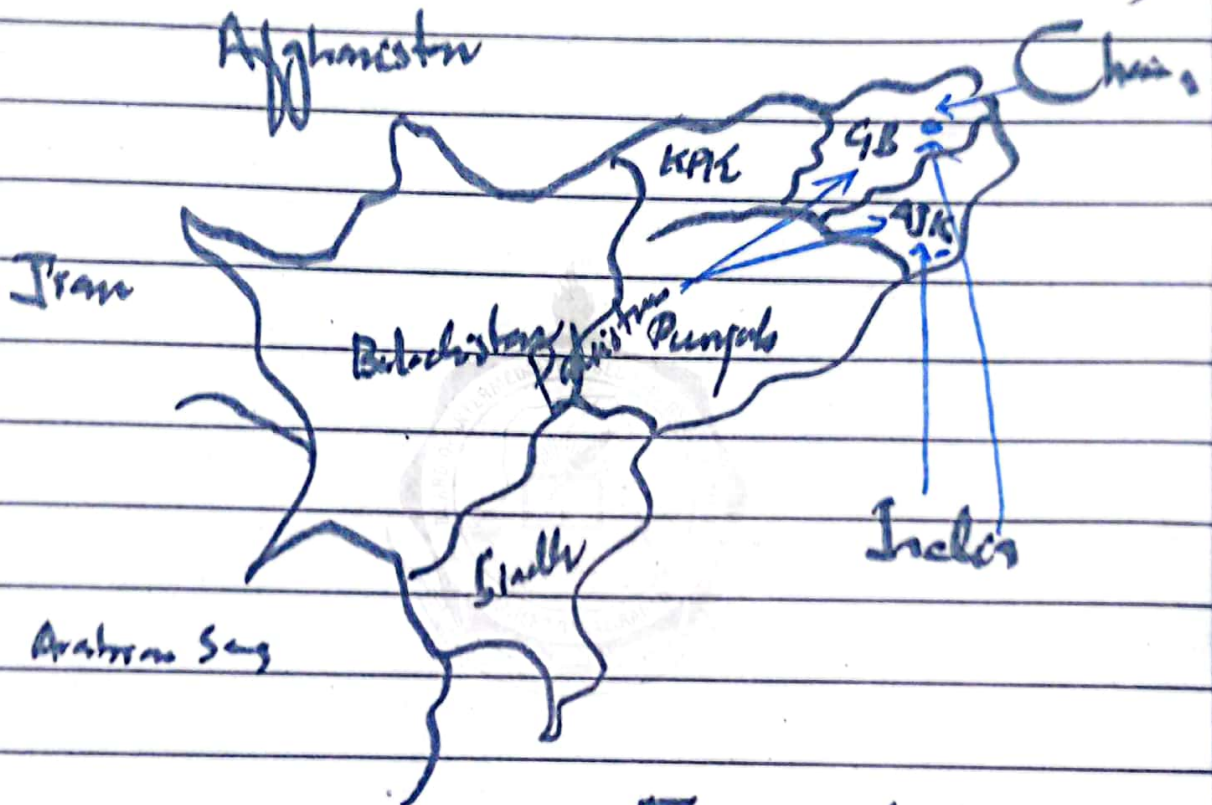 Afghanistan
China
KPK
GB
AJK
Iran
Balochistan
Pakistan
Punjab
India
Sindh
Arabian Sea